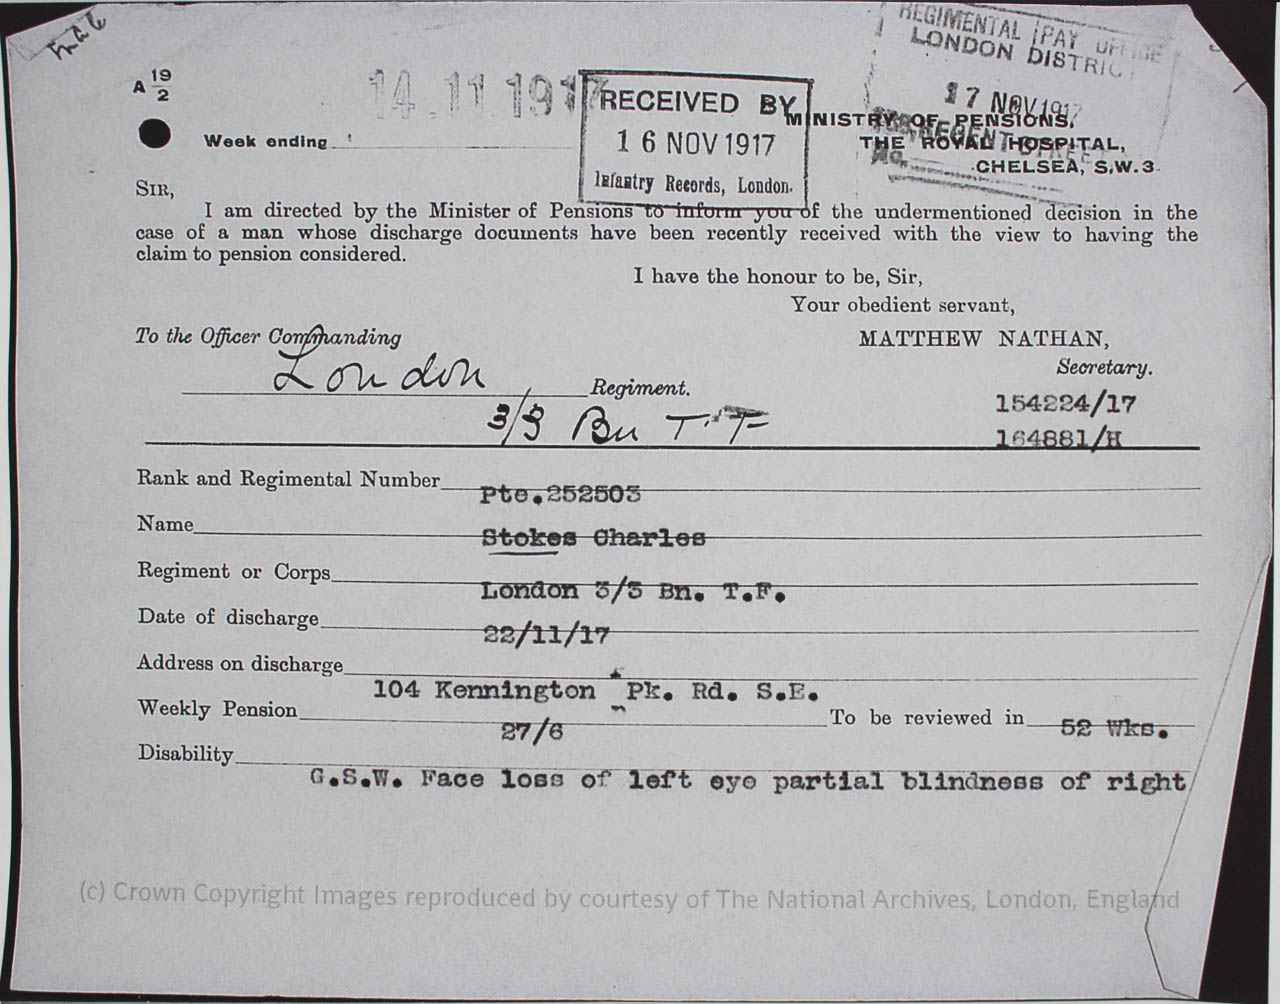 A 19/2
14.11.1917
RECEIVED BY
16 NOV 1917
Infantry Records, London.
REGIMENTAL PAY OFFICE
LONDON DISTRICT
17 NOV 1917
REGENT STREET
No.
Week ending
MINISTRY OF PENSIONS,
THE ROYAL HOSPITAL,
CHELSEA, S.W.3.
SIR,
I am directed by the Minister of Pensions to inform you of the undermentioned decision in the
case of a man whose discharge documents have been recently received with the view to having the
claim to pension considered.
I have the honour to be, Sir,
Your obedient servant,
To the Officer Commanding
MATTHEW NATHAN,
Secretary.
London Regiment.
154224/17
3/3 Bn T.F
164881/H
Rank and Regimental Number Pte.252503
Name Stokes Charles
Regiment or Corps London 3/3 Bn. T.F.
Date of discharge 22/11/17
Address on discharge 104 Kennington Pk. Rd. S.E.
Weekly Pension 27/6 To be reviewed in 52 Wks.
Disability G.S.W. Face loss of left eye partial blindness of right
(c) Crown Copyright Images reproduced by courtesy of The National Archives, London, England